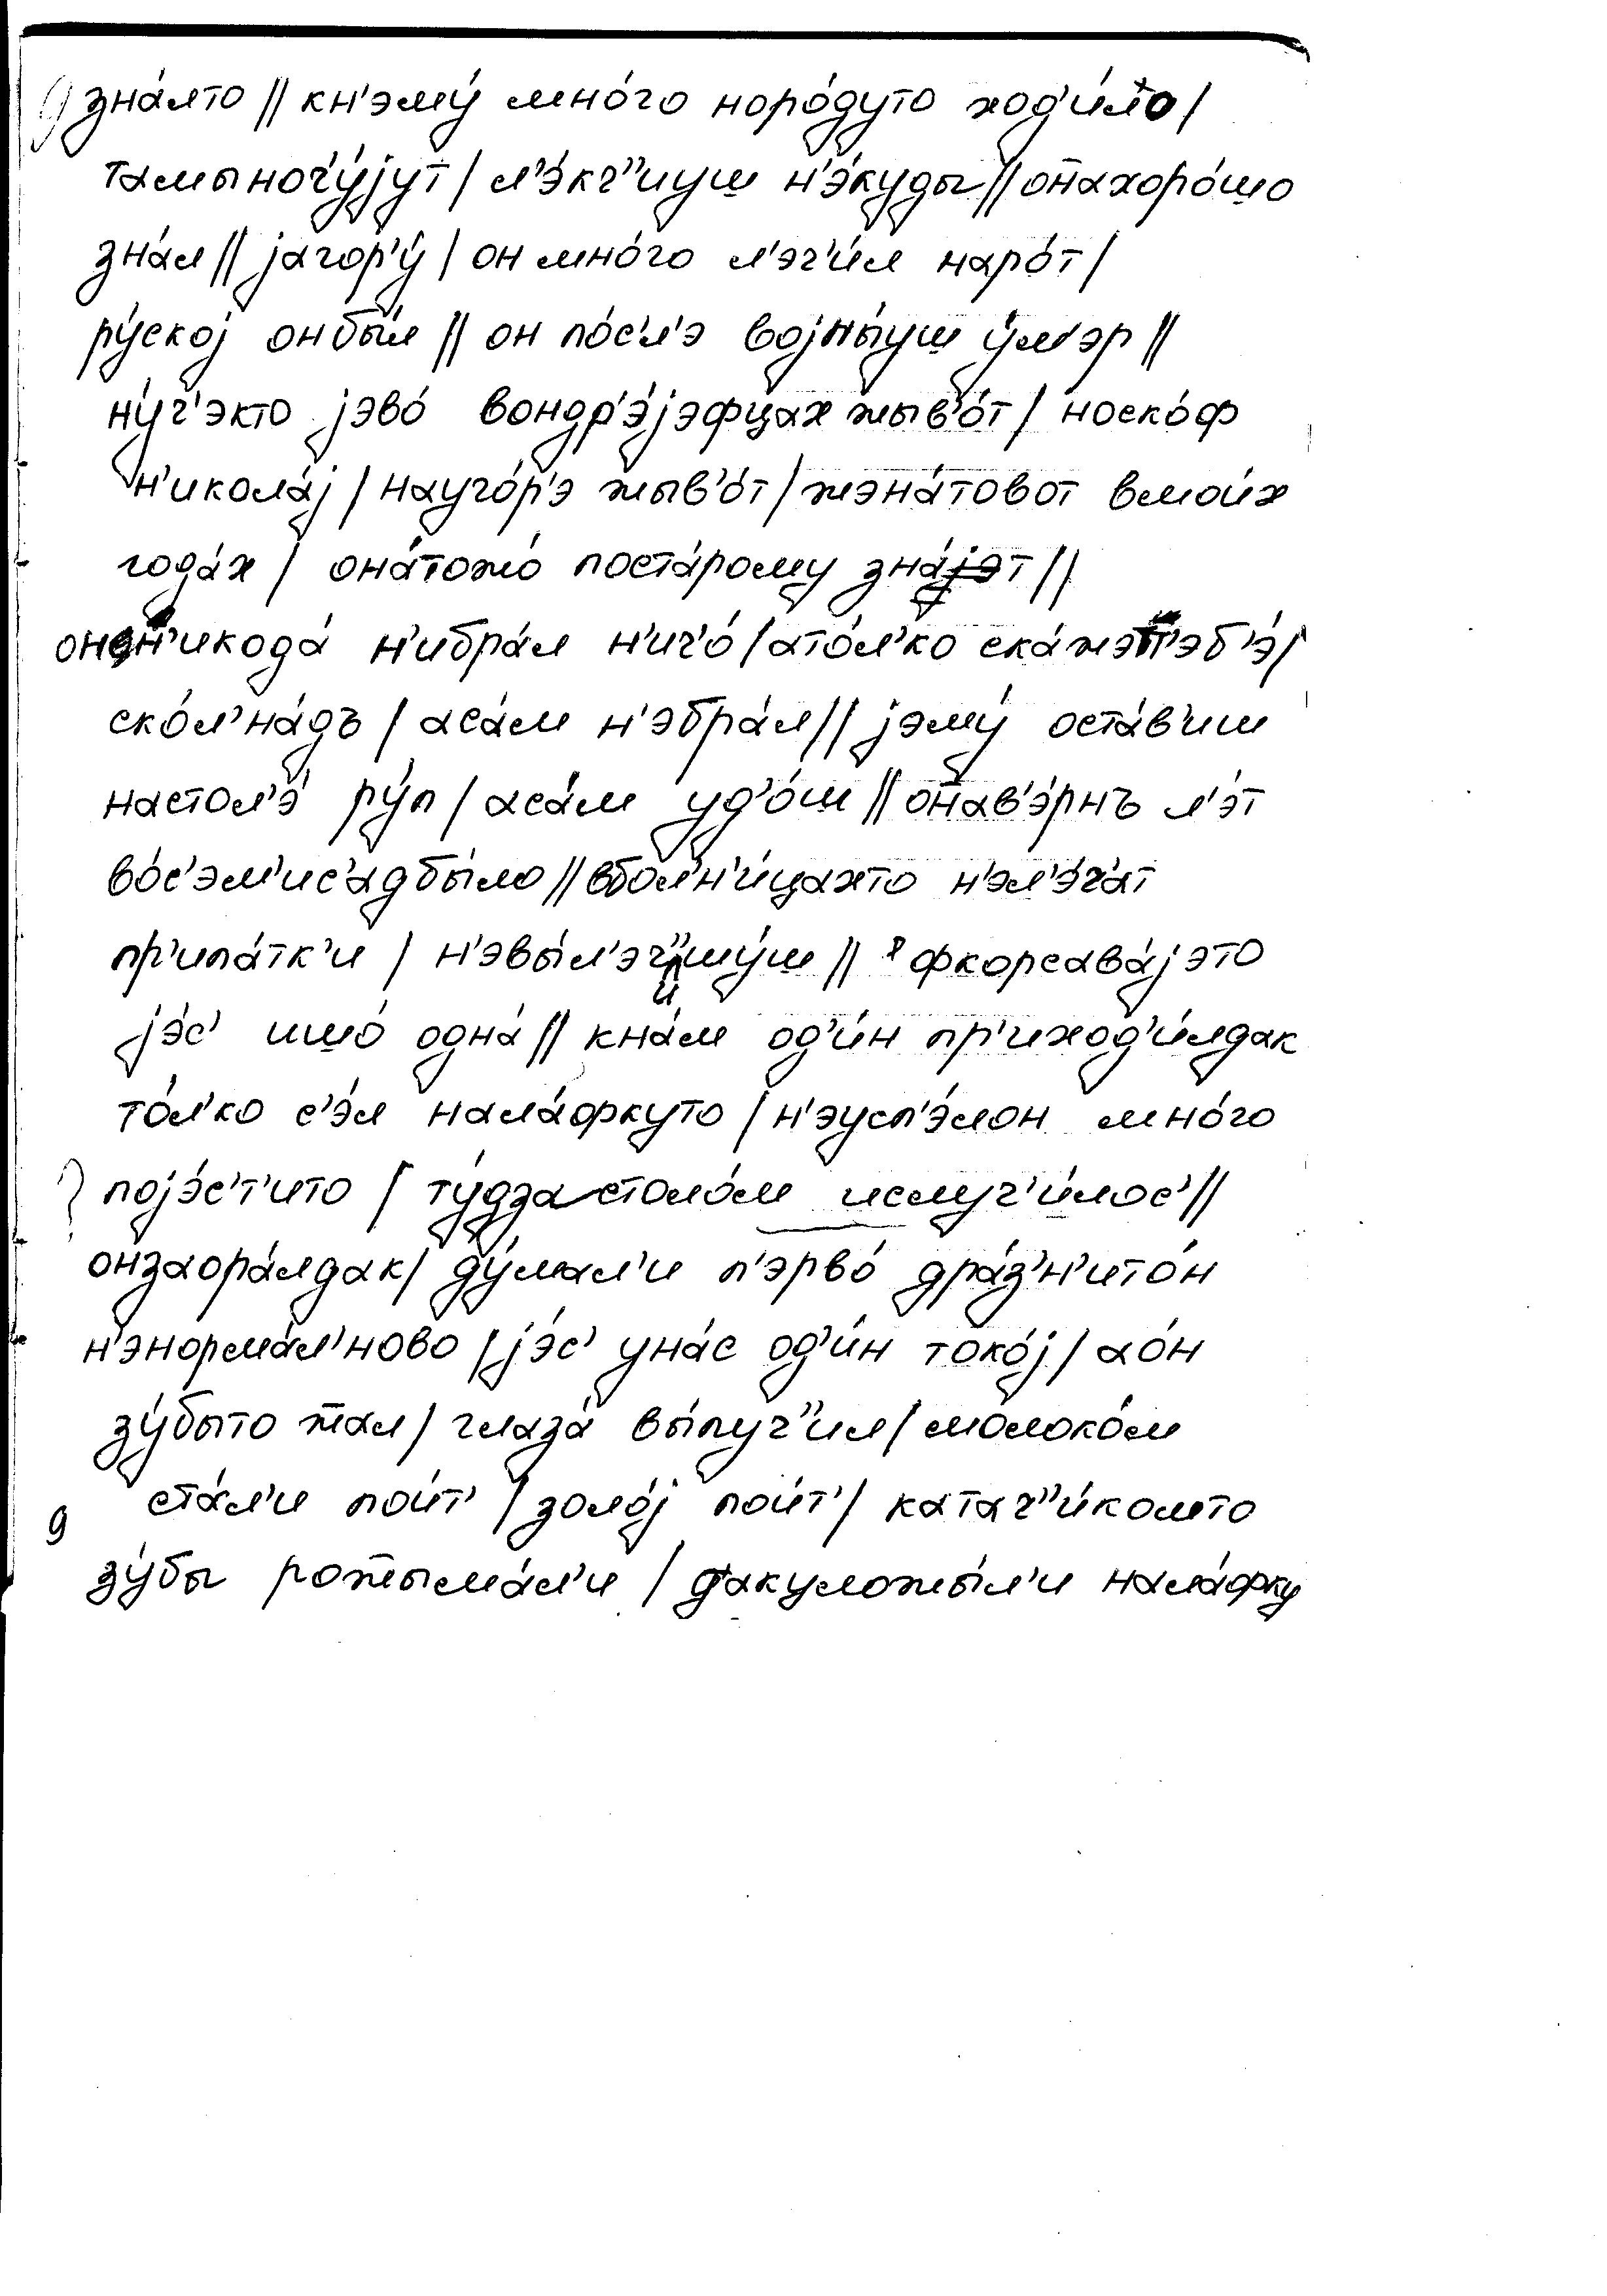 зна́лто // кн'эму́ мно́го норо́дуто ход'и́ло /
тамыноч'у́jут / л'э́кч"иуш н'э́куды // онахоро́шо
зна́л // jагор'у́ / он мно́го л'эч'и́л наро́т /
ру́скоj онбы́л // он по́сл'э воjны́уш у́м'эр //
ну́ч'экто jэво́ вондр'э́jэфцах жыв'о́т / носко́ф
н'икола́j / науго́р'э жыв'о́т / жэна́товот вмои́х
года́х / она́тожо́ поста́рому зна́jэт //
он н'икода́ н'ибра́л н'ич'о́ / ато́л'ко ска́жэт'эб'э́ /
ско́л'на́дъ / аса́м н'эбра́л // jэму́ оста́в'иш
настол'э́ ру́п / аса́м уд'о́ш // онав'э́рнъ л'э́т
во́с'эм'ис'адбы́ло // вбол'н'и́цахто н'эл'э́ч'ат
пр'ипа́тк'и / н'эвы́л'эч"ишу́ш // фкорсава́jэто
jэ́с' ишо́ одна́ // кна́м од'и́н пр'иход'и́лдак
то́л'ко с'э́л нала́фкуто / н'эусп'э́лон мно́го
поjэ́с'т'ито / ту́дзастоло́м ислуч'и́лос' //
онзаора́лдак / ду́мал'и п'эрво́ дра́з'н'ито́н
н'энорма́л'ново / jэ́с' уна́с од'и́н токо́j / ао́н
зу́быто жал / глаза́ вы́пуч"ил / молоко́м
ста́л'и пои́т' / золо́j пои́т' / катач"и́комто
зу́бы рожыма́л'и / дакуложы́л'и нала́фку